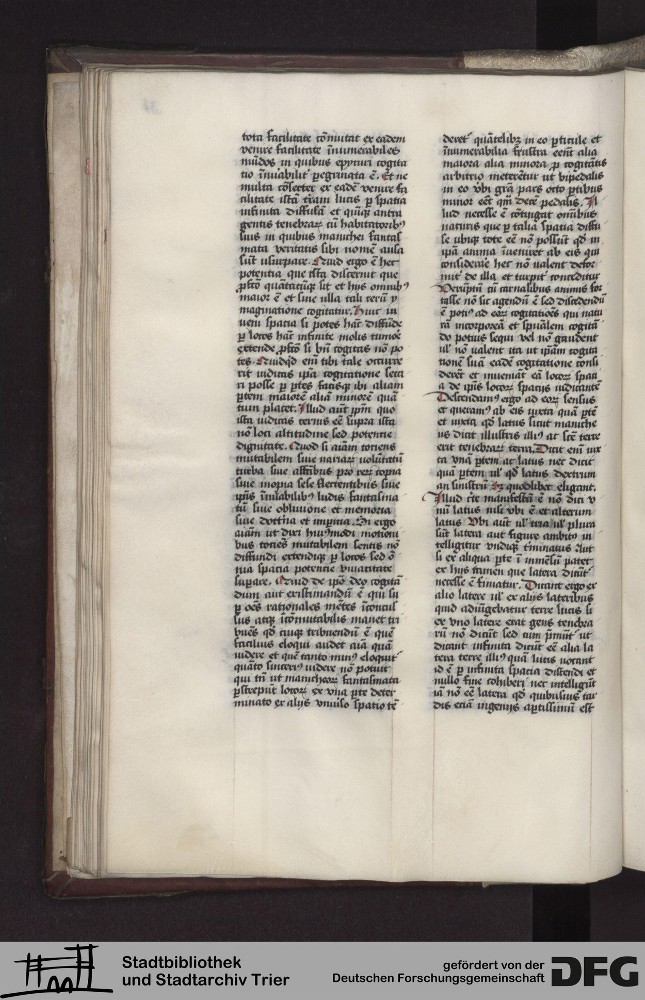 tota facilitate cōmutat ex eadem
venire facilitate īnumerabiles
mūdos in quibus epycuri cogita
tio īnuiabilit̉ peregrinata ē. Et ne
multa cōsecter ex eadē venire fa
cilitate istā tr̄am lucis ꝑ spatia
infinita diffusā et quinqꝫ antra
gentis tenebraꝝ cū habitatoribꝰ
suis in quibus manichei fantas
mata veritatis sibi nomē ausa
sūt usurpare. Quid ergo ē hec
potentia que ista discernit que
maior ē et sine ulla tali rerū y
maginatione cogitatur. Huic in
ueni spatia si potes hāc diffūde
ꝑ locos hāc infinite molis tumoē
extende ꝓfcō si bn̄ cogitas nō po
tes. Quidqd em̄ tibi tale occurre
rit iudicas ip̄a cogitatione seca
ri posse ꝑ ꝑtes facisqꝫ ibi aliam
ꝑtem maiorē aliā minorē quā
tum placet. Illud aūt ip̄m quo
ista iudicas cernis eē supra ista
nō loci altitudine sed potentie
dignitate. Quod si aīam tociens
mutabilem siue variaꝝ volūtatū
turba siue affc̄ibus pro reꝝ copia
siue inopia sese flectentibus siue
ludis fantasma
tū siue obliuione et memoria
siue doct̉na et imꝑicia. Si ergo
aīam ut dixi huiꝰmodi motioni
bus tociēs mutabilem sentis nō
diffundi extendiqꝫ ꝑ locos sed ō
nia spacia potentie viuacitate
suꝑare. Quid de ip̄o deo cogitā
dum aut existimandū ē qui su
ꝑ oēs rationales mētes īconcul
sus atqꝫ īcōmutabilis manet tri
buēs qd cuiqꝫ tribuendū ē quē
facilius eloqui audet aīa quā
videre et quē tanto minꝰ eloquit̉
quāto sinceriꝰ videre nō potuit
qui tn̄ ut manicheoꝝ fantasmata
ꝑstrepunt locoꝝ ex vna ꝑte deter
minato ex alijs vniu̓so spatio tē
deret̉ quātelibꝫ in eo ꝑticule et
īnumerabilia frustra eent alia
maiora alia minora ꝓ cogitātis
arbitrio meterētur ut bipedalis
in eo vbi gr̄a pars octo ꝑtibus
minor eēt qm̄ decē pedalis. Il
lud necesse ē cōtingat omibus
naturis que ꝑ talia spatia diffu
se ubiqꝫ tote eē nō possūt qd in
ip̄a anima īuenitur ab eis qui
considerare hec nō valent defor
mit̉ de illa et turpit̉ conceditur
Verūptn̄ cū carnalibus animis for
tasse nō sic agendū ē sed discedendū
ē potiꝰ ad eoꝝ cogitatiōes qui natu
rā incorporeā et spūalem cogitā
do potius sequi vel nō gaudent
ul̓ nō valent ita ut ip̄am cogita
tionē suā eadē cogitatione consi
derēt et inueniāt eā locoꝝ spati
a de ip̄is locoꝝ spatijs iudicantē
Descendamꝰ ergo ad eoꝝ sensus
et queramꝰ ab eis iuxta quā ꝑtē
et iuxta qd latus lucit maniche
us dicit illustris illiꝰ ac sc̄ē terre
erat tenebraꝝ terra. Dicit em̄ iux
ta vnā ꝑtem ac latus nec dicit
quā ꝑtem ul̓ qd latus dextrum
an sinistrū Sꝫ quodlibet eligant.
Illud cte manifestū ē nō dici v
nū latus nisi vbi ē et alterum
latus Vbi aūt ul̓ tria ul̓ plura
sūt latera aut figure ambitꝰ in
telligitur vndiqꝫ t̓minatus aut
si ex aliqua ꝑte ī inmēsū patet
ex hijs tamen que latera dicūt̉
necesse ē finiatur. Dicant ergo ex
alio latere ul̓ ex alijs lateribus
quid adiūgebatur terre lucis si
ex vno latere erat gens tenebra
rū nō dicūt sed cum ꝑmūt̉ ut
dicant infinita dicūt eē alia la
tera terre illiꝰ quā lucis vocant
id ē ꝑ infinita spacia distendi et
nullo fine cohiberi nec intelligūt
iā nō eē latera qd quibusuis tar
dis eciā ingenijs aꝑtissimū est
Stadtbibliothek
und Stadtarchiv Trier
gefördert von der
Deutschen Forschungsgemeinschaft
DFG